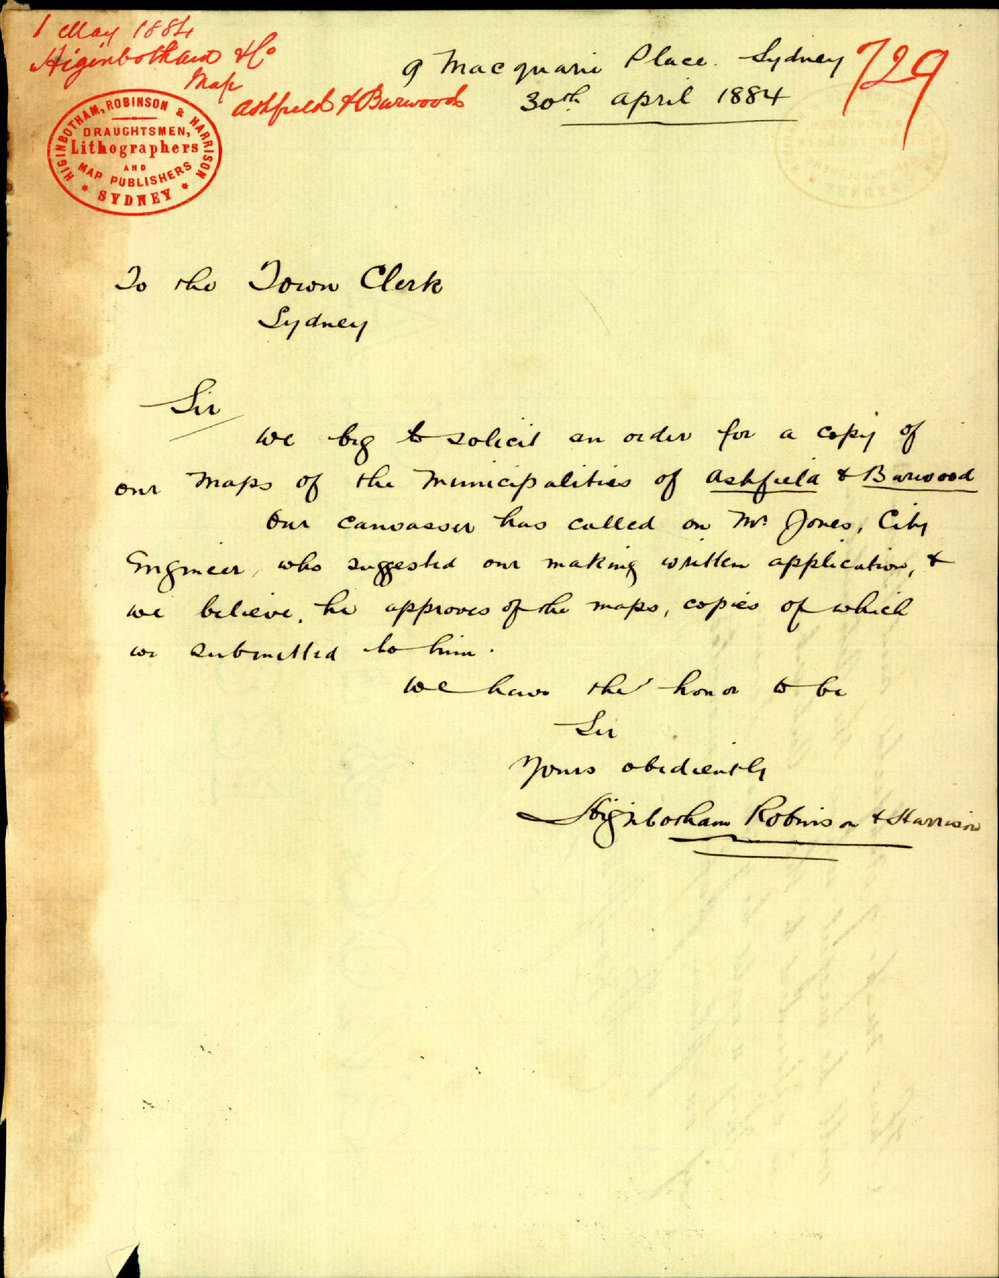 1 May 1884
Higinbotham & Co
Map
Ashfield & Burwood
729
HIGINBOTHAM, ROBINSON & HARRISON
DRAUGHTSMEN,
Lithographers
AND
MAP PUBLISHERS
* SYDNEY *
9 Macquarie Place. Sydney
30th April 1884
To the Town Clerk
Sydney
Sir
We beg to solicit an order for a copy of
our Maps of the Municipalities of Ashfield & Burwood
Our canvasser has called on Mr Jones, City
Engineer, who suggested our making written application, &
we believe, he approves of the maps, copies of which
we submitted to him.
We have the honor to be
Sir
Yours obediently
Higinbotham Robinson & Harrison